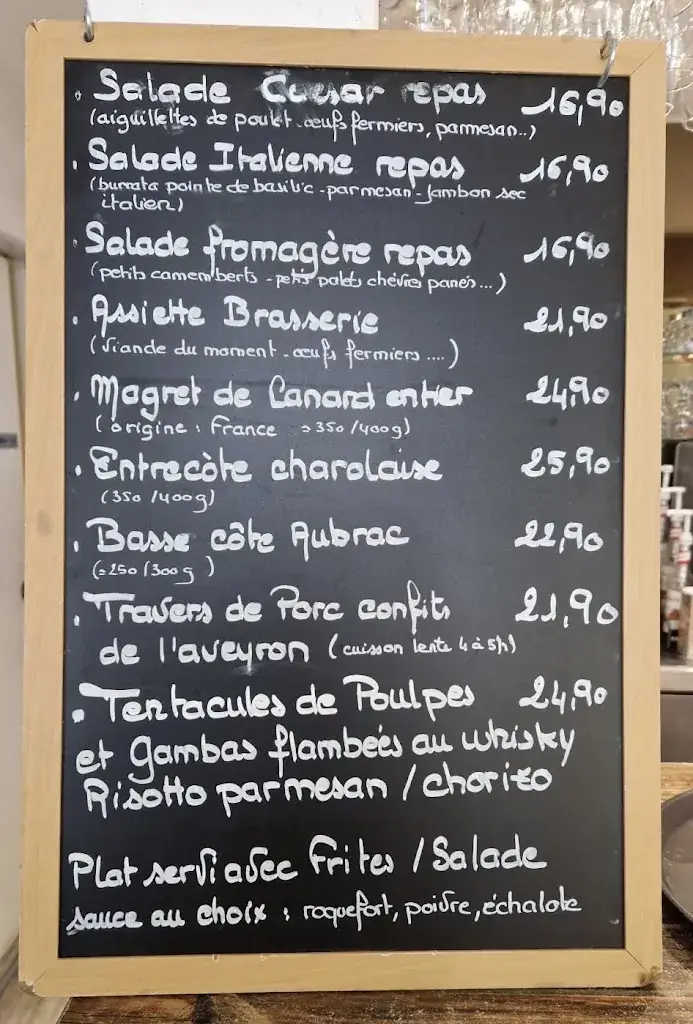 . Salade Caesar repas 16,90
(aiguillettes de poulet - œufs fermiers, parmesan..)
. Salade Italienne repas 16,90
(burrata pointe de basilic - parmesan - jambon sec
italien)
. Salade fromagère repas 16,90
(petits camemberts - petits palets chèvres panés...)
. Assiette Brasserie 21,90
(Viande du moment - œufs fermiers ....)
. Magret de Canard entier 24,90
(origine : France ≈ 350/400g)
. Entrecôte charolaise 25,90
(350/400g)
. Basse côte Aubrac 22,90
(≈ 250/300g)
. Travers de Porc confits 21,90
de l'aveyron (cuisson lente 4 à 5h)
. Tentacules de Poulpes 24,90
et Gambas flambées au whisky
Risotto parmesan / chorizo
Plat servi avec Frites / Salade
sauce au choix : roquefort, poivre, échalote